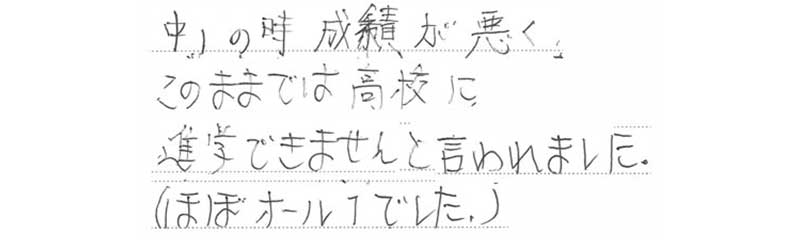 中1の時 成績が悪く、
このままでは高校に
進学できませんと言われました。
(ほぼオール1でした。)